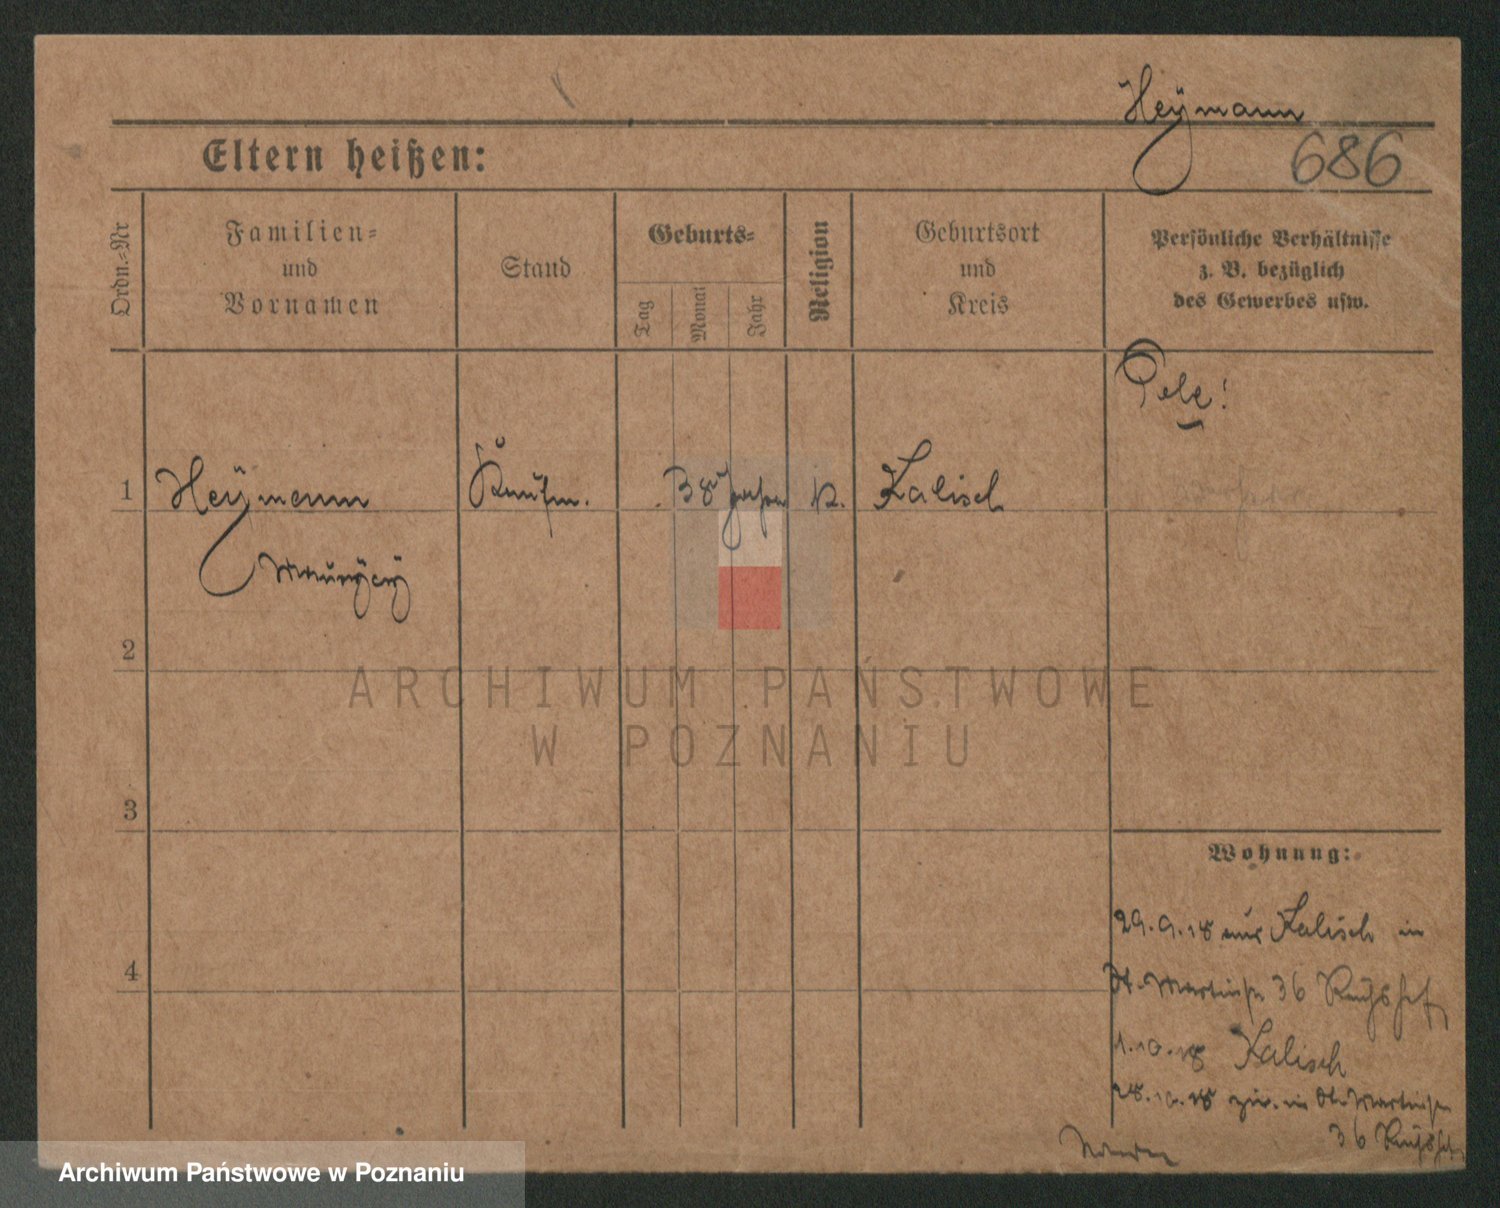 Heymann
686
Eltern heißen:
Ordn.-Nr
Familien-
und
Vornamen
Stand
Geburts-
Tag
Monat
Jahr
Religion
Geburtsort
und
Kreis
Persönliche Verhältnisse
z. B. bezüglich
des Gewerbes usw.
1
Heymann
Kaufm.
38 Jahre
K.
Kalisch
2
ARCHIWUM PAŃSTWOWE
W POZNANIU
3
Wohnung:
29.9.18 aus Kalisch in
St. Martinstr 36 Reichshof
4
1.10.18 Kalisch
28.10.18 zur. in St. Martinstr
36 Reichshof
Archiwum Państwowe w Poznaniu